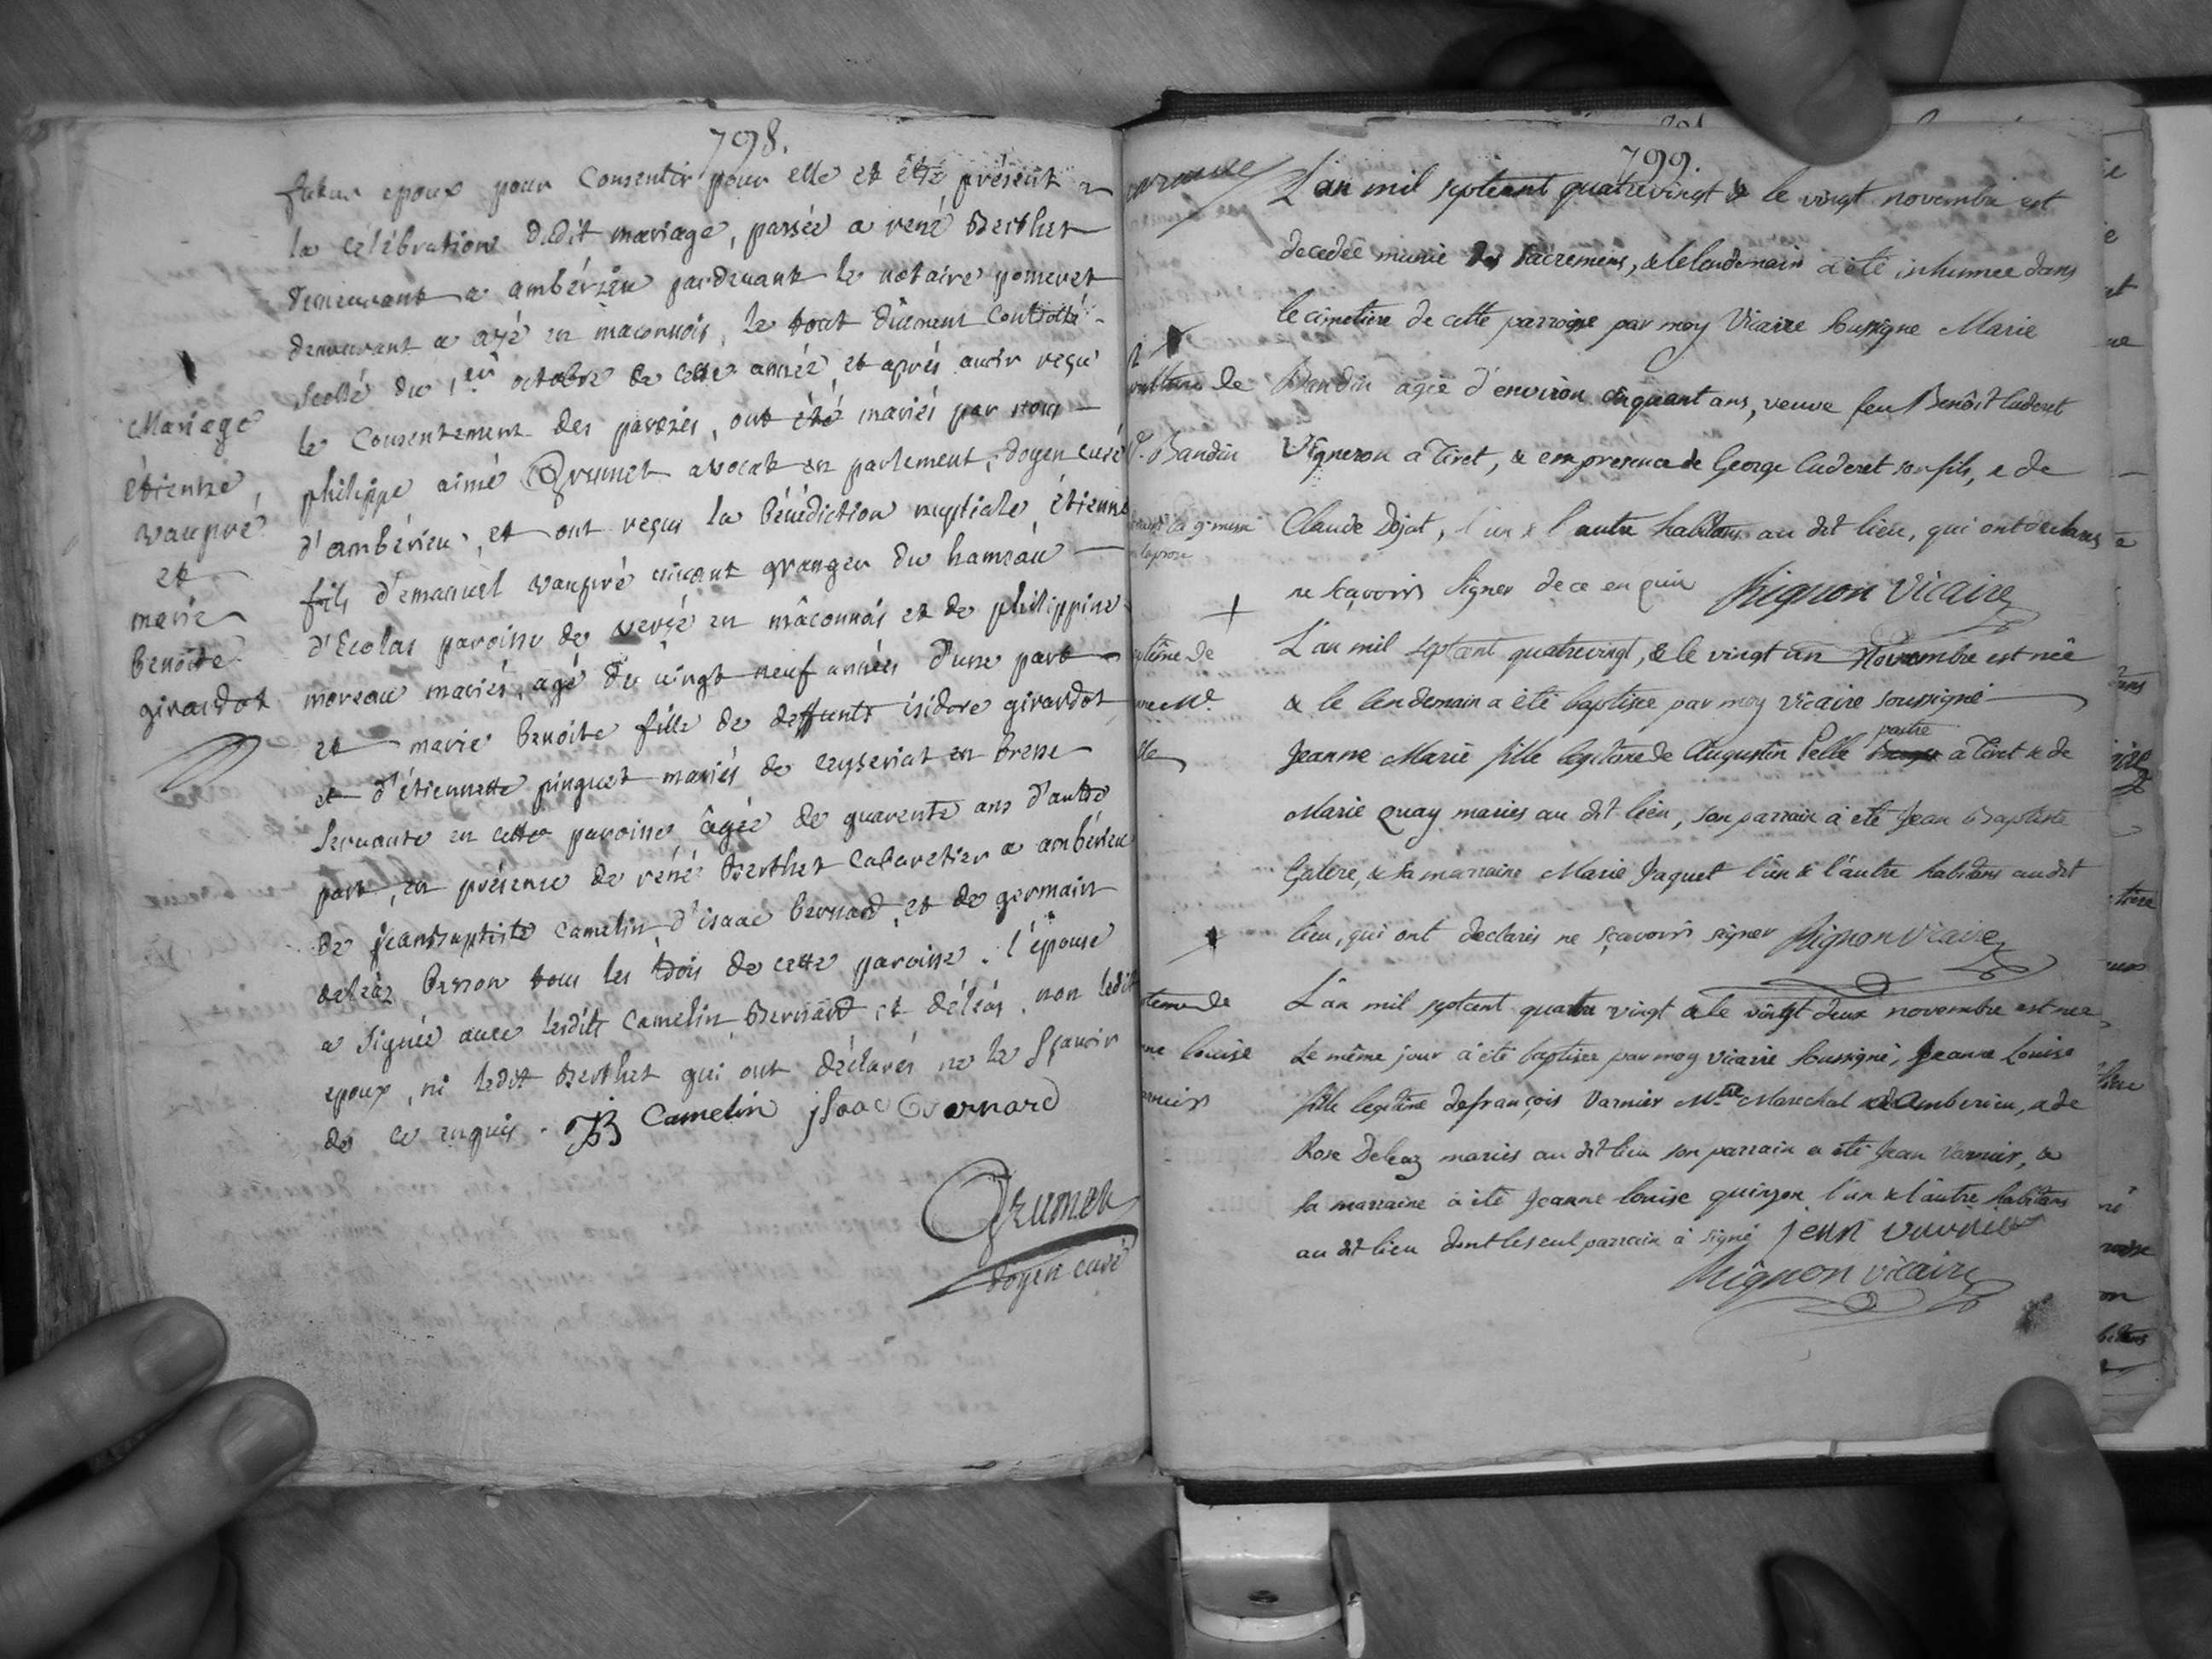 798.
futur epoux pour Consentir pour elle et être présent a
la célébration dudit mariage, passée a rené Berthet
demeurant a ambérieu pardevant le notaire pomeret
demeurant a azé en maconnois, le tout dûement Controllé
Scellé du 1er octobre de cette année, et après avoir reçu
le Consentement des parties, ont été mariés par nous
philippe aimé Grumet avocat en parlement, doyen curé
d'ambérieu, et ont reçus la Bénédiction nuptiale, étienne
fils d'emanuel vaupré vivant granger du hameau
d'Ecolas paroisse de vergé en mâconnois et de philippine
moreau mariés, agé de vingt neuf années d'une part
et marie Benoite fille de deffunts isidore girardot
et d'étiennette pinguet mariés de ceyseriat en bresse
Servante en cette paroisse, âgée de quarente ans d'autre
part, en présence de réné Berthet Cabaretier a ambérieu
de jeanbaptiste Camelin, d'isaac bernard, et de germain
deléaz Besson tous les trois de cette paroisse. l'épouse
a Signée avec lesdits Camelin Bernard et déléas, non ledit
epoux, ni ledit Berthet qui ont déclarés ne le Sçavoir
de ce enquis. JB Camelin jsaac Bernard
Grumet
doyen curé
Mariage
étienne
vaupré
et
marie
Benoite
girardot
799.
L'an mil septcent quatrevingt & le vingt novembre est
decedée munie des sacremens, & le lendemain a été inhumee dans
le cimetiere de cette parroisse par moy Vicaire soussigne Marie
Bandin agée d'environ cinquant ans, veuve feu Benôist Cuderet
Vigneron à Tiret, & en presence de George Cuderet son fils, & de
Claude Dejat, l'un & l'autre habitans au dit lieu, qui ont declarés
ne sçavoirs signer de ce enquis Mignon Vicaire
de
Bandin
L'an mil septcent quatrevingt, & le vingt un Novembre est née
& le lendemain a été baptisée par moy vicaire soussigné
Jeanne Marie fille legitime de Augustin Pelle patre à Tiret & de
Marie Quay mariés au dit lieu, son parrain a été Jean Baptiste
Galere, & sa marraine Marie Jaquet l'un & l'autre habitans audit
lieu, qui ont declarés ne sçavoirs signer Mignon vicaire
L'an mil septcent quatre vingt & le vingt deux novembre est nee,
Le même jour a été baptisée par moy vicaire soussigné, Jeanne Louise
fille legitime de françois Varnier Mtre Marechal à Amberieu, & de
Rose Deleaz mariés au dit lieu son parrain a été Jean Varnier, &
sa marraine a été Jeanne Louise quinson l'un & l'autre habitans
au dit lieu dont le seul parrain à signé jean varnier
Mignon vicaire
de
Louise